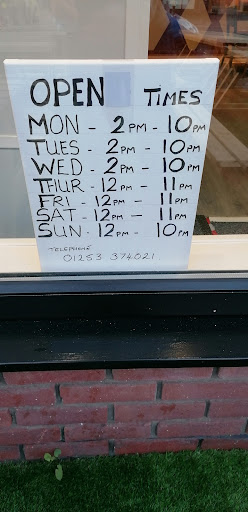 OPEN TIMES
MON - 2PM - 10PM
TUES - 2PM - 10PM
WED - 2PM - 10PM
THUR - 12PM - 11PM
FRI - 12PM - 11PM
SAT - 12PM - 11PM
SUN - 12PM - 10PM
TELEPHONE
01253 374021